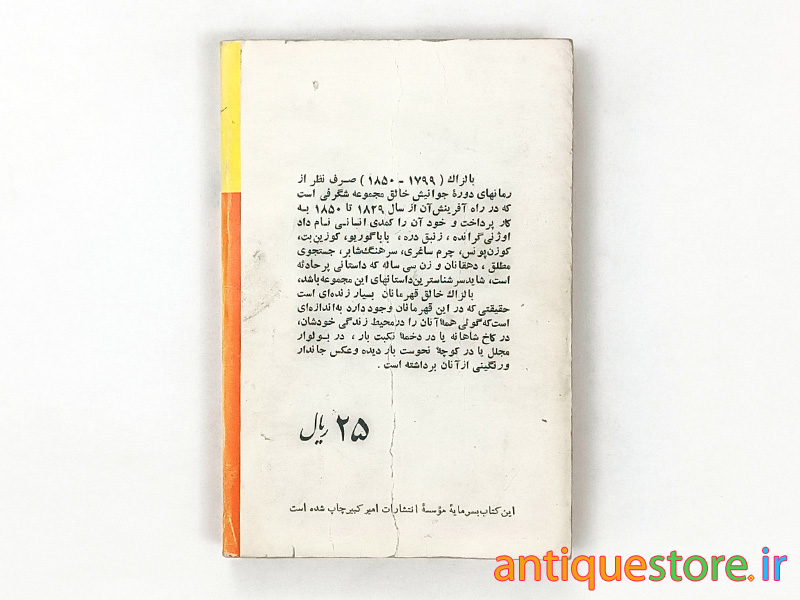 بالزاك (۱۷۹۹ - ۱۸۵۰) صرف نظر از
رمانهای دورهٔ جوانیش خالق مجموعه شگرفی است
که در راه آفرینش آن از سال ۱۸۲۹ تا ۱۸۵۰ به
کار پرداخت و خود آن را کمدی انسانی نام داد
اوژنی گرانده، زنبق دره، باباگوریو، کوزین‌بت،
کوزن‌پونس، چرم ساغری، سرهنگ‌شابر، جستجوی
مطلق، دهقانان و زن سی ساله که داستانی پرحادثه
است، شاید سرشناسترین داستانهای این مجموعه باشد.
بالزاك خالق قهرمانان بسیار زنده‌ای است
حقیقتی که در این قهرمانان وجود دارد به‌اندازه‌ای
است‌که گوئی همهٔ آنان را در محیط زندگی خودشان،
در کاخ شاهانه یا در دخمهٔ نکبت بار، در بولوار
مجلل یا در کوچهٔ نحوست بار دیده و عکس جاندار
و رنگینی از آنان برداشته است.
۲۵ ریال
این کتاب بسرمایهٔ مؤسسهٔ انتشارات امیرکبیر چاپ شده است
antiquestore.ir